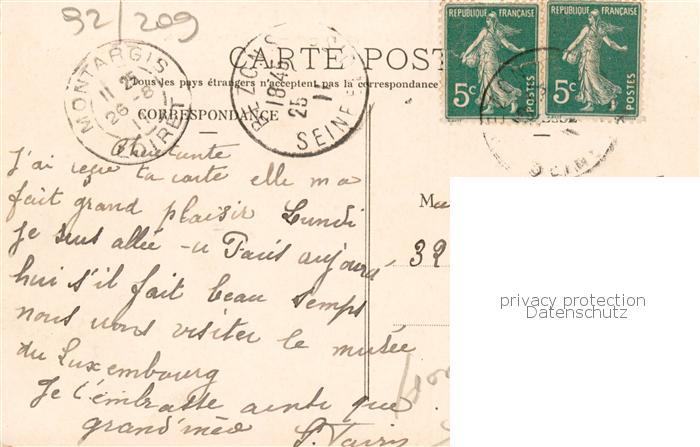 92/209
CARTE POST
Tous les pays étrangers n'acceptent pas la correspondance
CORRESPONDANCE
MONTARGIS
11 25
26 -8
LOIRET
18 45
25
11
SEINE
RÉPUBLIQUE FRANÇAISE
5c
POSTES
RÉPUBLIQUE FRANÇAISE
5c
POSTES
J'ai reçu ta carte elle m'a
fait grand plaisir Lundi
Je suis allée Paris aujourd
hui s'il fait beau temps
nous irons visiter le musée
du Luxembourg
Je t'embrasse ainsi que
grand'mée
Ma
39
privacy protection
Datenschutz